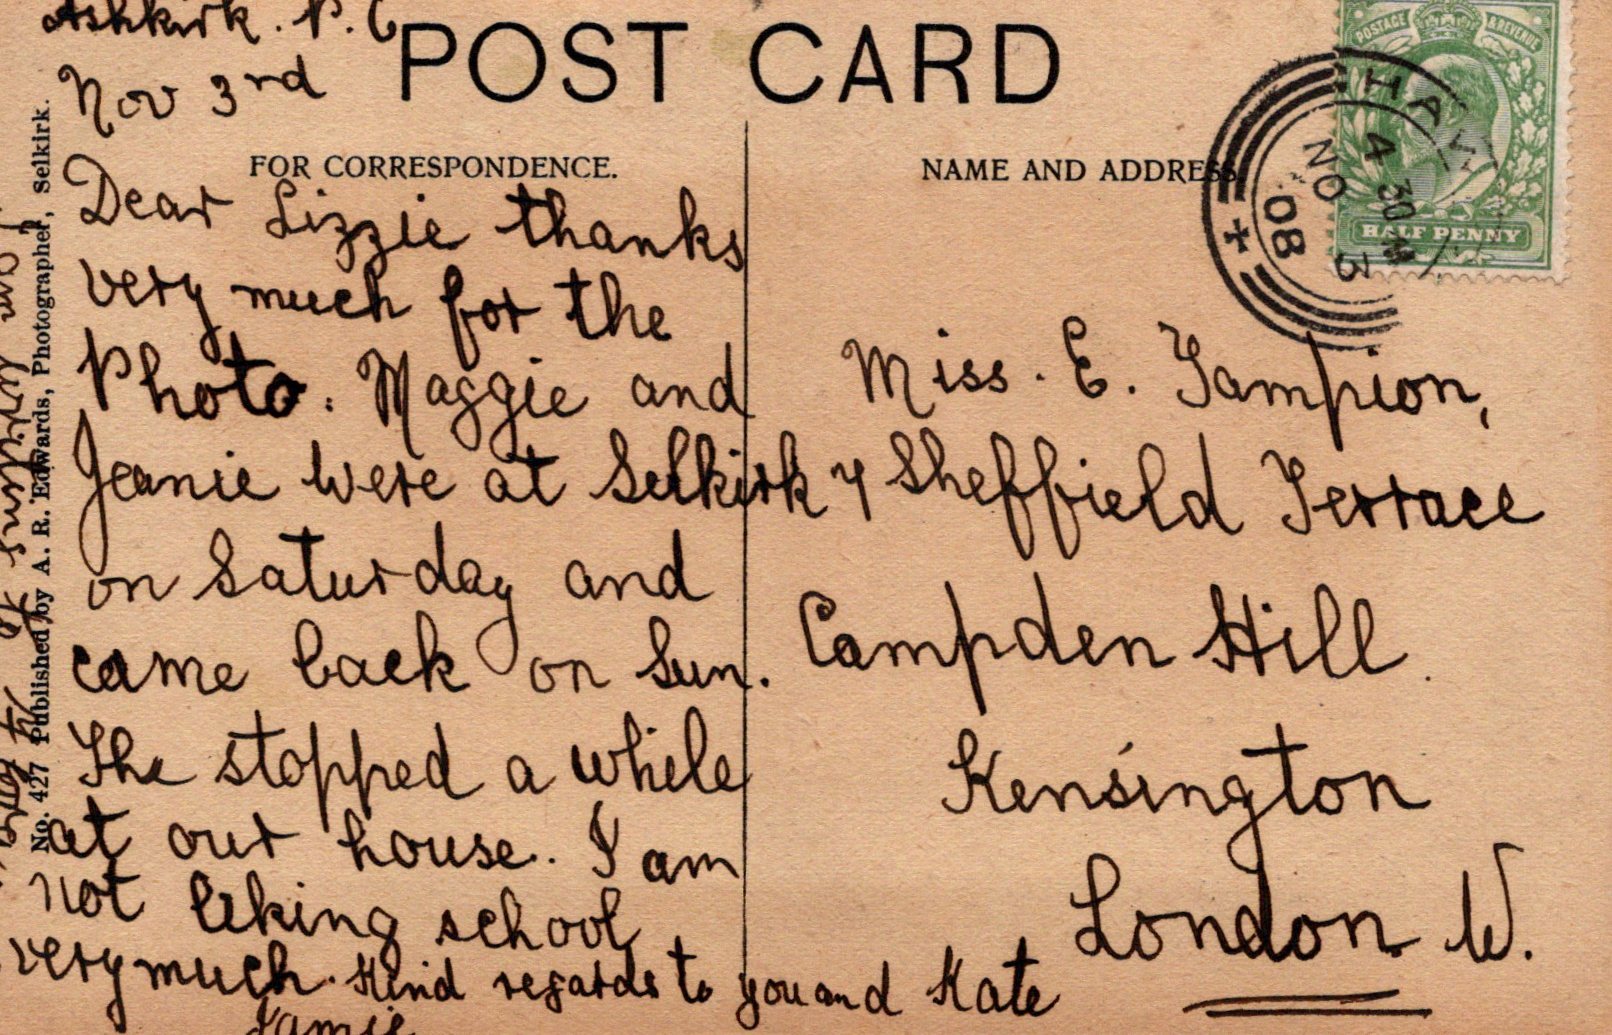 Ashkirk. P. C
Nov 3rd
POST CARD
FOR CORRESPONDENCE.
NAME AND ADDRESS.
Dear Lizzie thanks
very much for the
Photo. Maggie and
Jeanie were at Selkirk
on Saturday and
came back on Sun.
The stopped a while
at our house. I am
not liking school
very much. Kind regards to you and Kate
Jamie
Miss. E. Tampion,
4 Sheffield Terrace
Campden Hill.
Kensington
London. W.
No. 427 Published by A. R. Edwards, Photographer, Selkirk.
POSTAGE & REVENUE
HALF PENNY
HAWI
4 30
NO 3
08